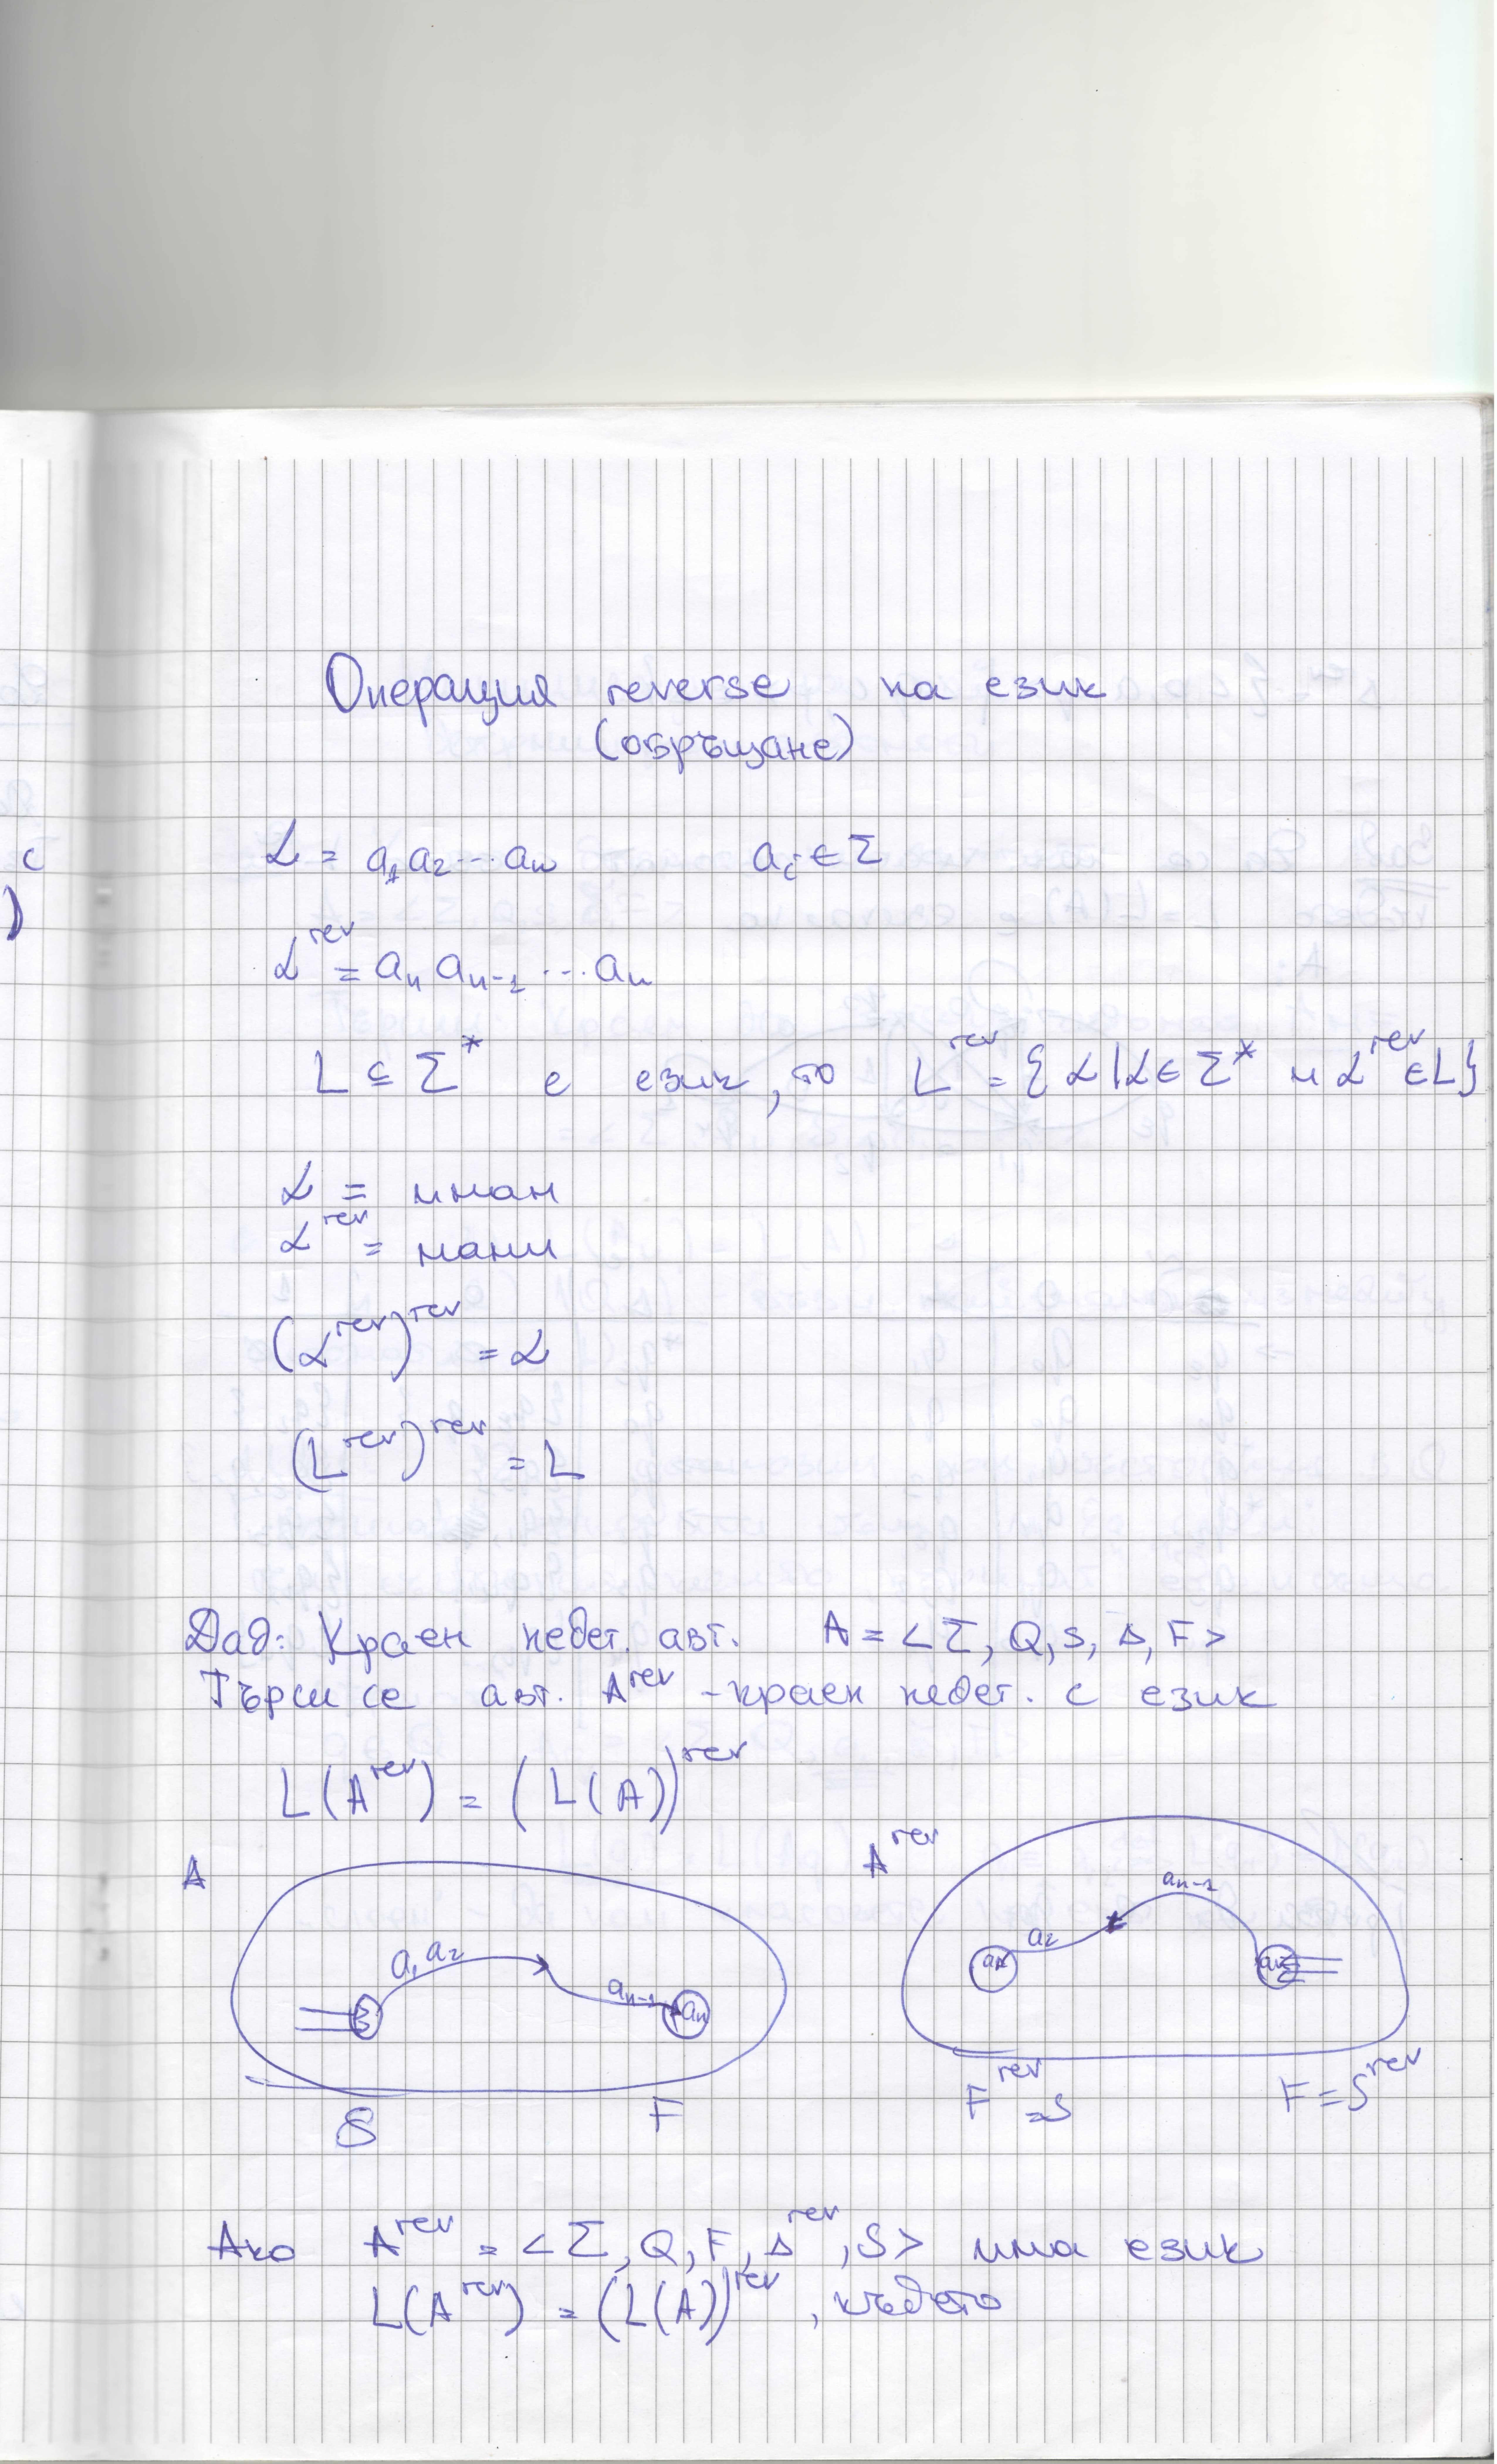 Операция reverse на език
(обръщане)
α = a₁a₂...aₙ aᵢ ∈ Σ
α^rev = aₙ aₙ₋₁ ... aₙ
L ⊆ Σ* е език, то L^rev = {α | α ∈ Σ* и α^rev ∈ L}
α = иман
α^rev = нами
(α^rev)^rev = α
(L^rev)^rev = L
Дад: Краен недет. авт. A = <Σ, Q, S, Δ, F>
Търси се авт. A^rev - краен недет. с език
L(A^rev) = (L(A))^rev
A
a₁ a₂
aₙ₋₁
aₙ
S
F
A^rev
a₂
aₙ₋₁
F^rev = S
F = S^rev
Ако A^rev = <Σ, Q, F, Δ^rev, S> има език
L(A^rev) = (L(A))^rev, където